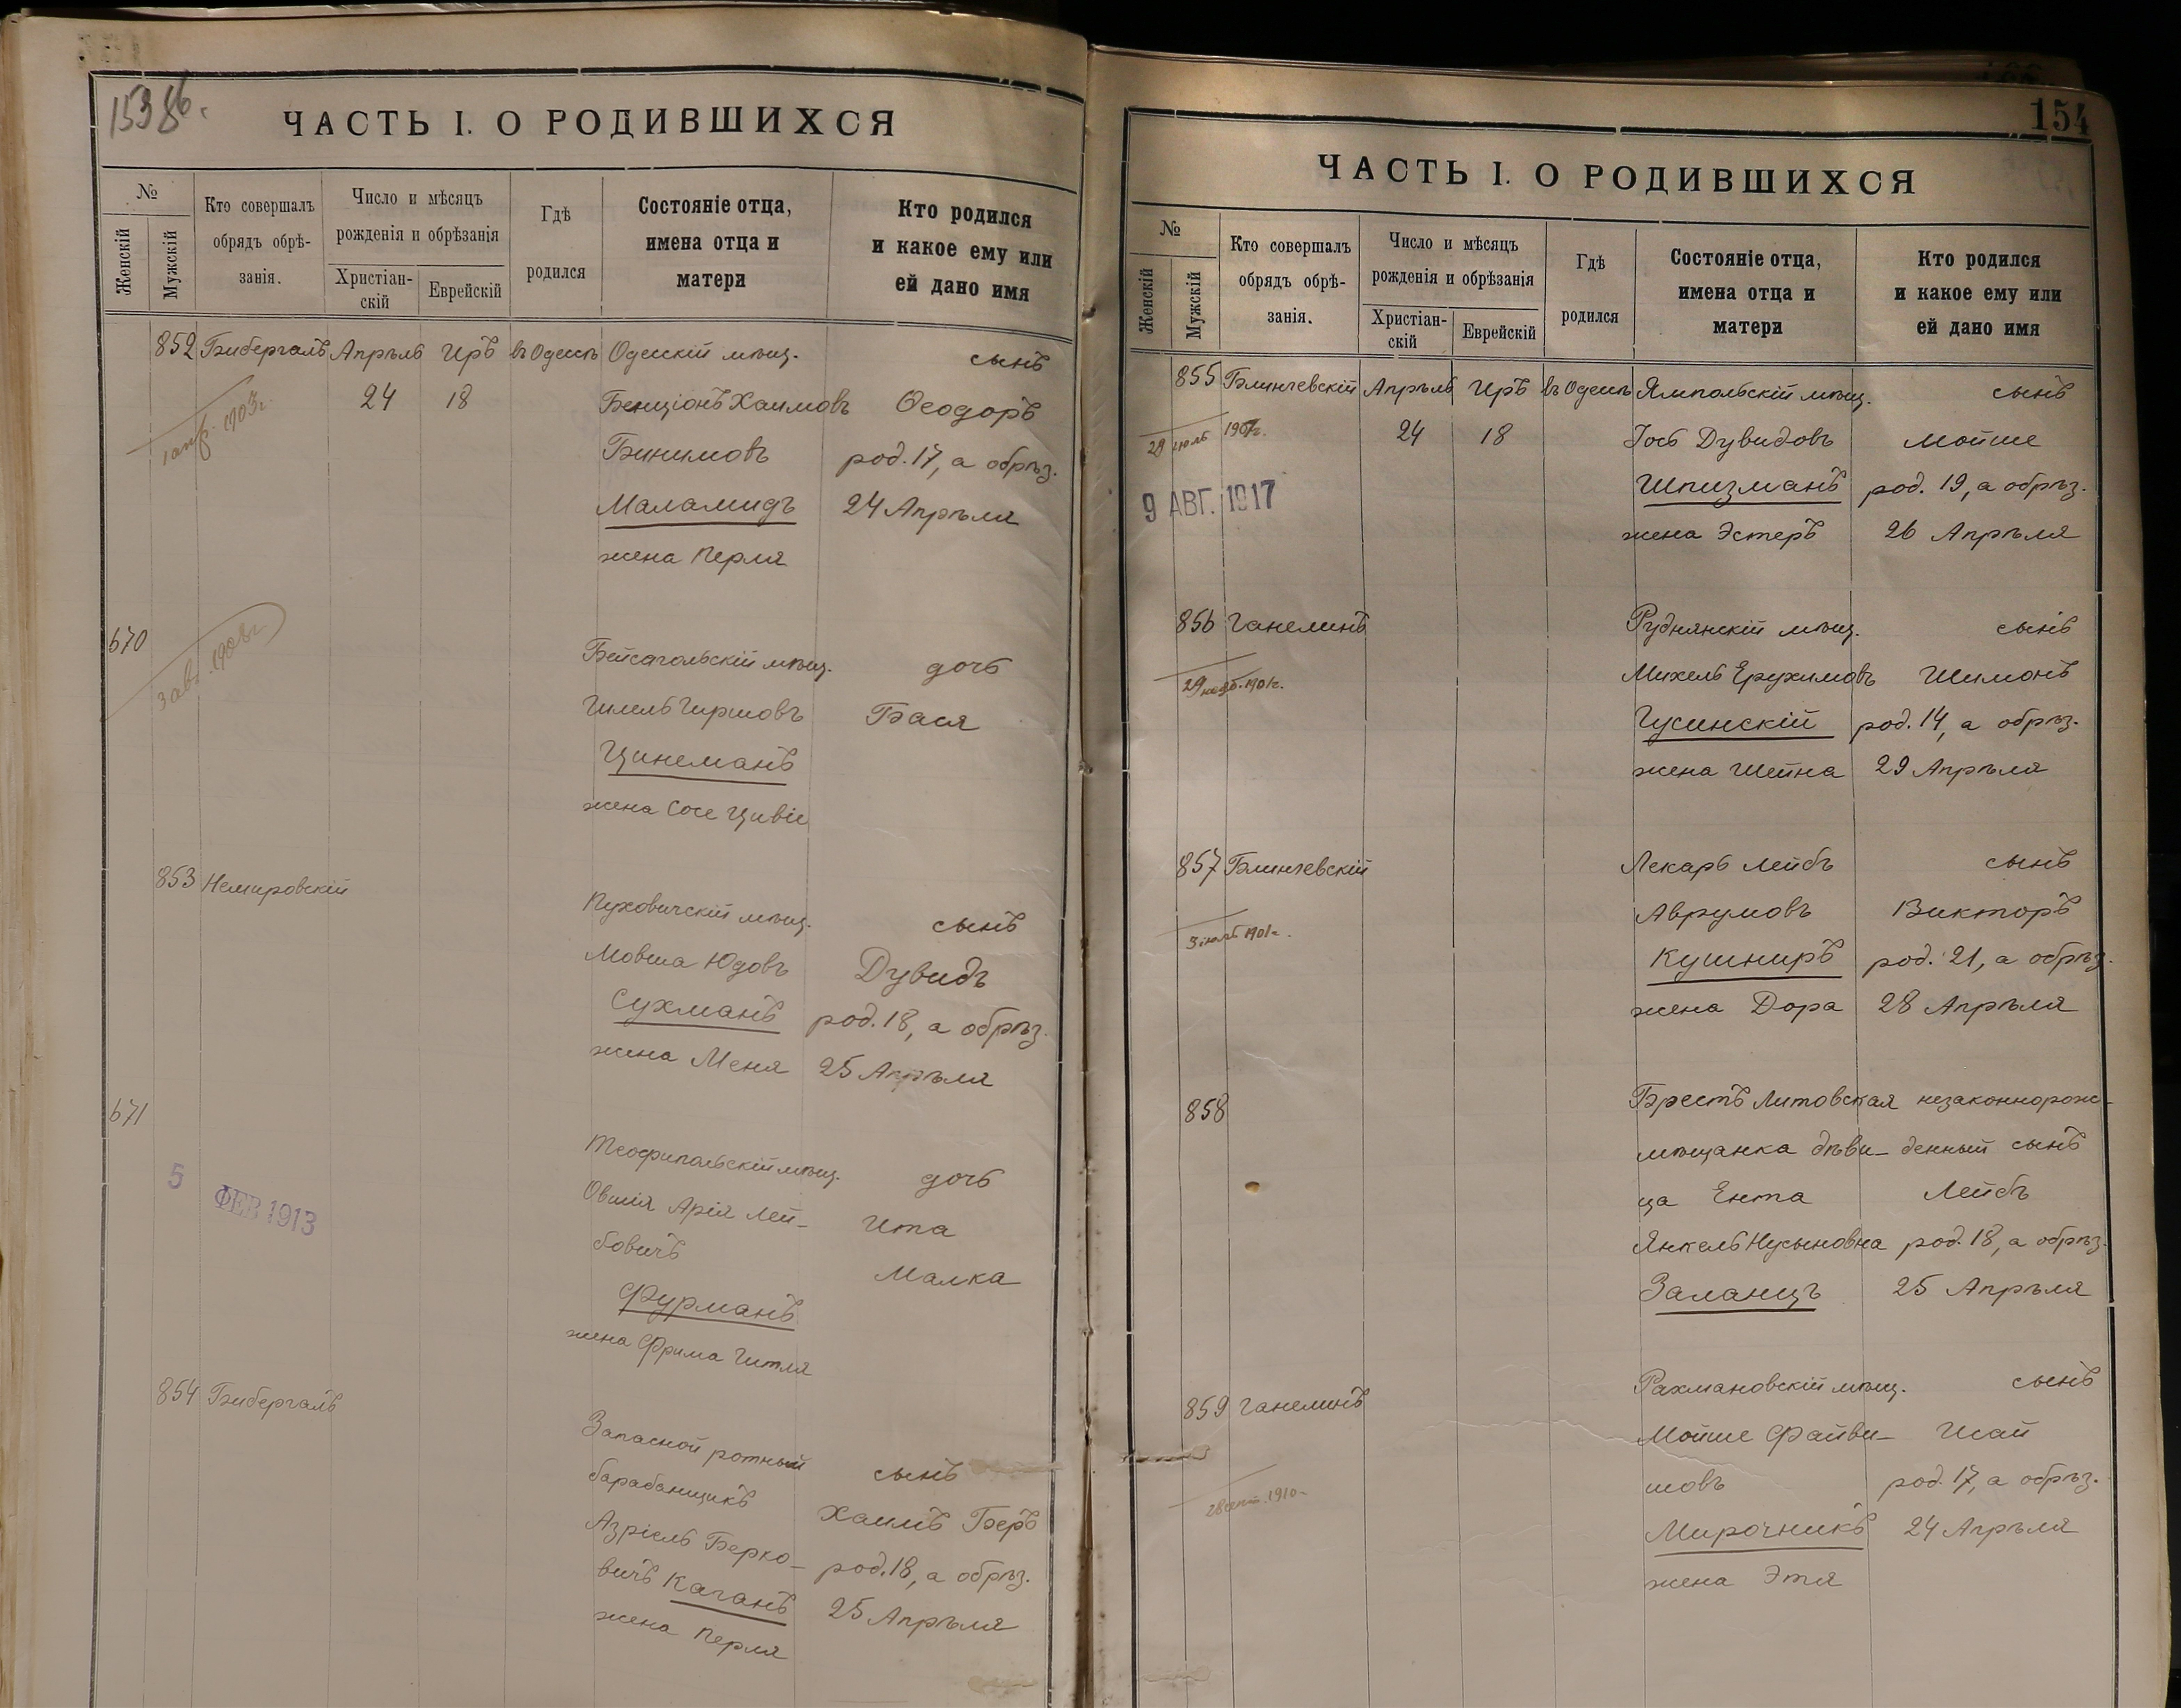 153 об.
ЧАСТЬ I. О РОДИВШИХСЯ
№
Женскій
Мужскій
Кто совершалъ
обрядъ обрѣ-
занія.
Число и мѣсяцъ
рожденія и обрѣзанія
Христіан-
скій
Еврейскій
Гдѣ
родился
Состояніе отца,
имена отца и
матери
Кто родился
и какое ему или
ей дано имя
852 Бибергалъ Апрѣль Иръ въ Одессѣ Одесскій мѣщ. сынъ
24 18 Бенціонъ Хаимовъ Ѳеодоръ
1 апр. 1903г.
Бинимовъ род. 17, а обрѣз.
Маламидъ 24 Апрѣля
жена Перля
670
3 авг. 1908г.
Бейсагольскій мѣщ. дочь
Шмель Гиршовъ Бася
Цинеманъ
жена Сосе Цивіе
853 Немировскій
Пуховичскій мѣщ. сынъ
Мовша Юдовъ Дувидъ
Сухманъ род. 18, а обрѣз.
жена Меня 25 Апрѣля
671
5 ФЕВ 1913
Теофипольскій мѣщ. дочь
Овшія Арія Лей- Ита
бовичъ Малка
Фурманъ
жена Фрима Гитля
854 Бибергалъ
Запасной ротный
барабанщикъ сынъ
Азріель Берко- Хаимъ Беръ
вичъ Каганъ род. 18, а обрѣз.
жена Перля 25 Апрѣля
154
ЧАСТЬ I. О РОДИВШИХСЯ
№
Женскій
Мужскій
Кто совершалъ
обрядъ обрѣ-
занія.
Число и мѣсяцъ
рожденія и обрѣзанія
Христіан-
скій
Еврейскій
Гдѣ
родился
Состояніе отца,
имена отца и
матери
Кто родился
и какое ему или
ей дано имя
855 Блинчевскій Апрѣль Иръ въ Одессѣ Ямпольскій мѣщ. сынъ
29 іюль 24 18 Іось Дувидовъ Мойше
9 АВГ. 1917 Шпизманъ род. 19, а обрѣз.
жена Эстеръ 26 Апрѣля
856 Ганелинъ Руднянскій мѣщ. сынъ
29 нояб. 1901г. Михель Ерухимовъ Шимонъ
Гусинскій род. 14, а обрѣз.
жена Шейна 29 Апрѣля
857 Блинчевскій Лекарь Лейбъ сынъ
1901г. Аврумовъ Викторъ
Кушниръ род. 21, а обрѣз.
жена Дора 28 Апрѣля
858 Брестъ Литовская незаконнорож-
мѣщанка дѣви- денный сынъ
ца Ента Лейбъ
Янкель Нусыновна род. 18, а обрѣз.
Заланцъ 25 Апрѣля
859 Ганелинъ Рахмановскій мѣщ. сынъ
Мойше Файви- Исай
28 1910г. шовъ род. 17, а обрѣз.
Мирочникъ 24 Апрѣля
жена Этя